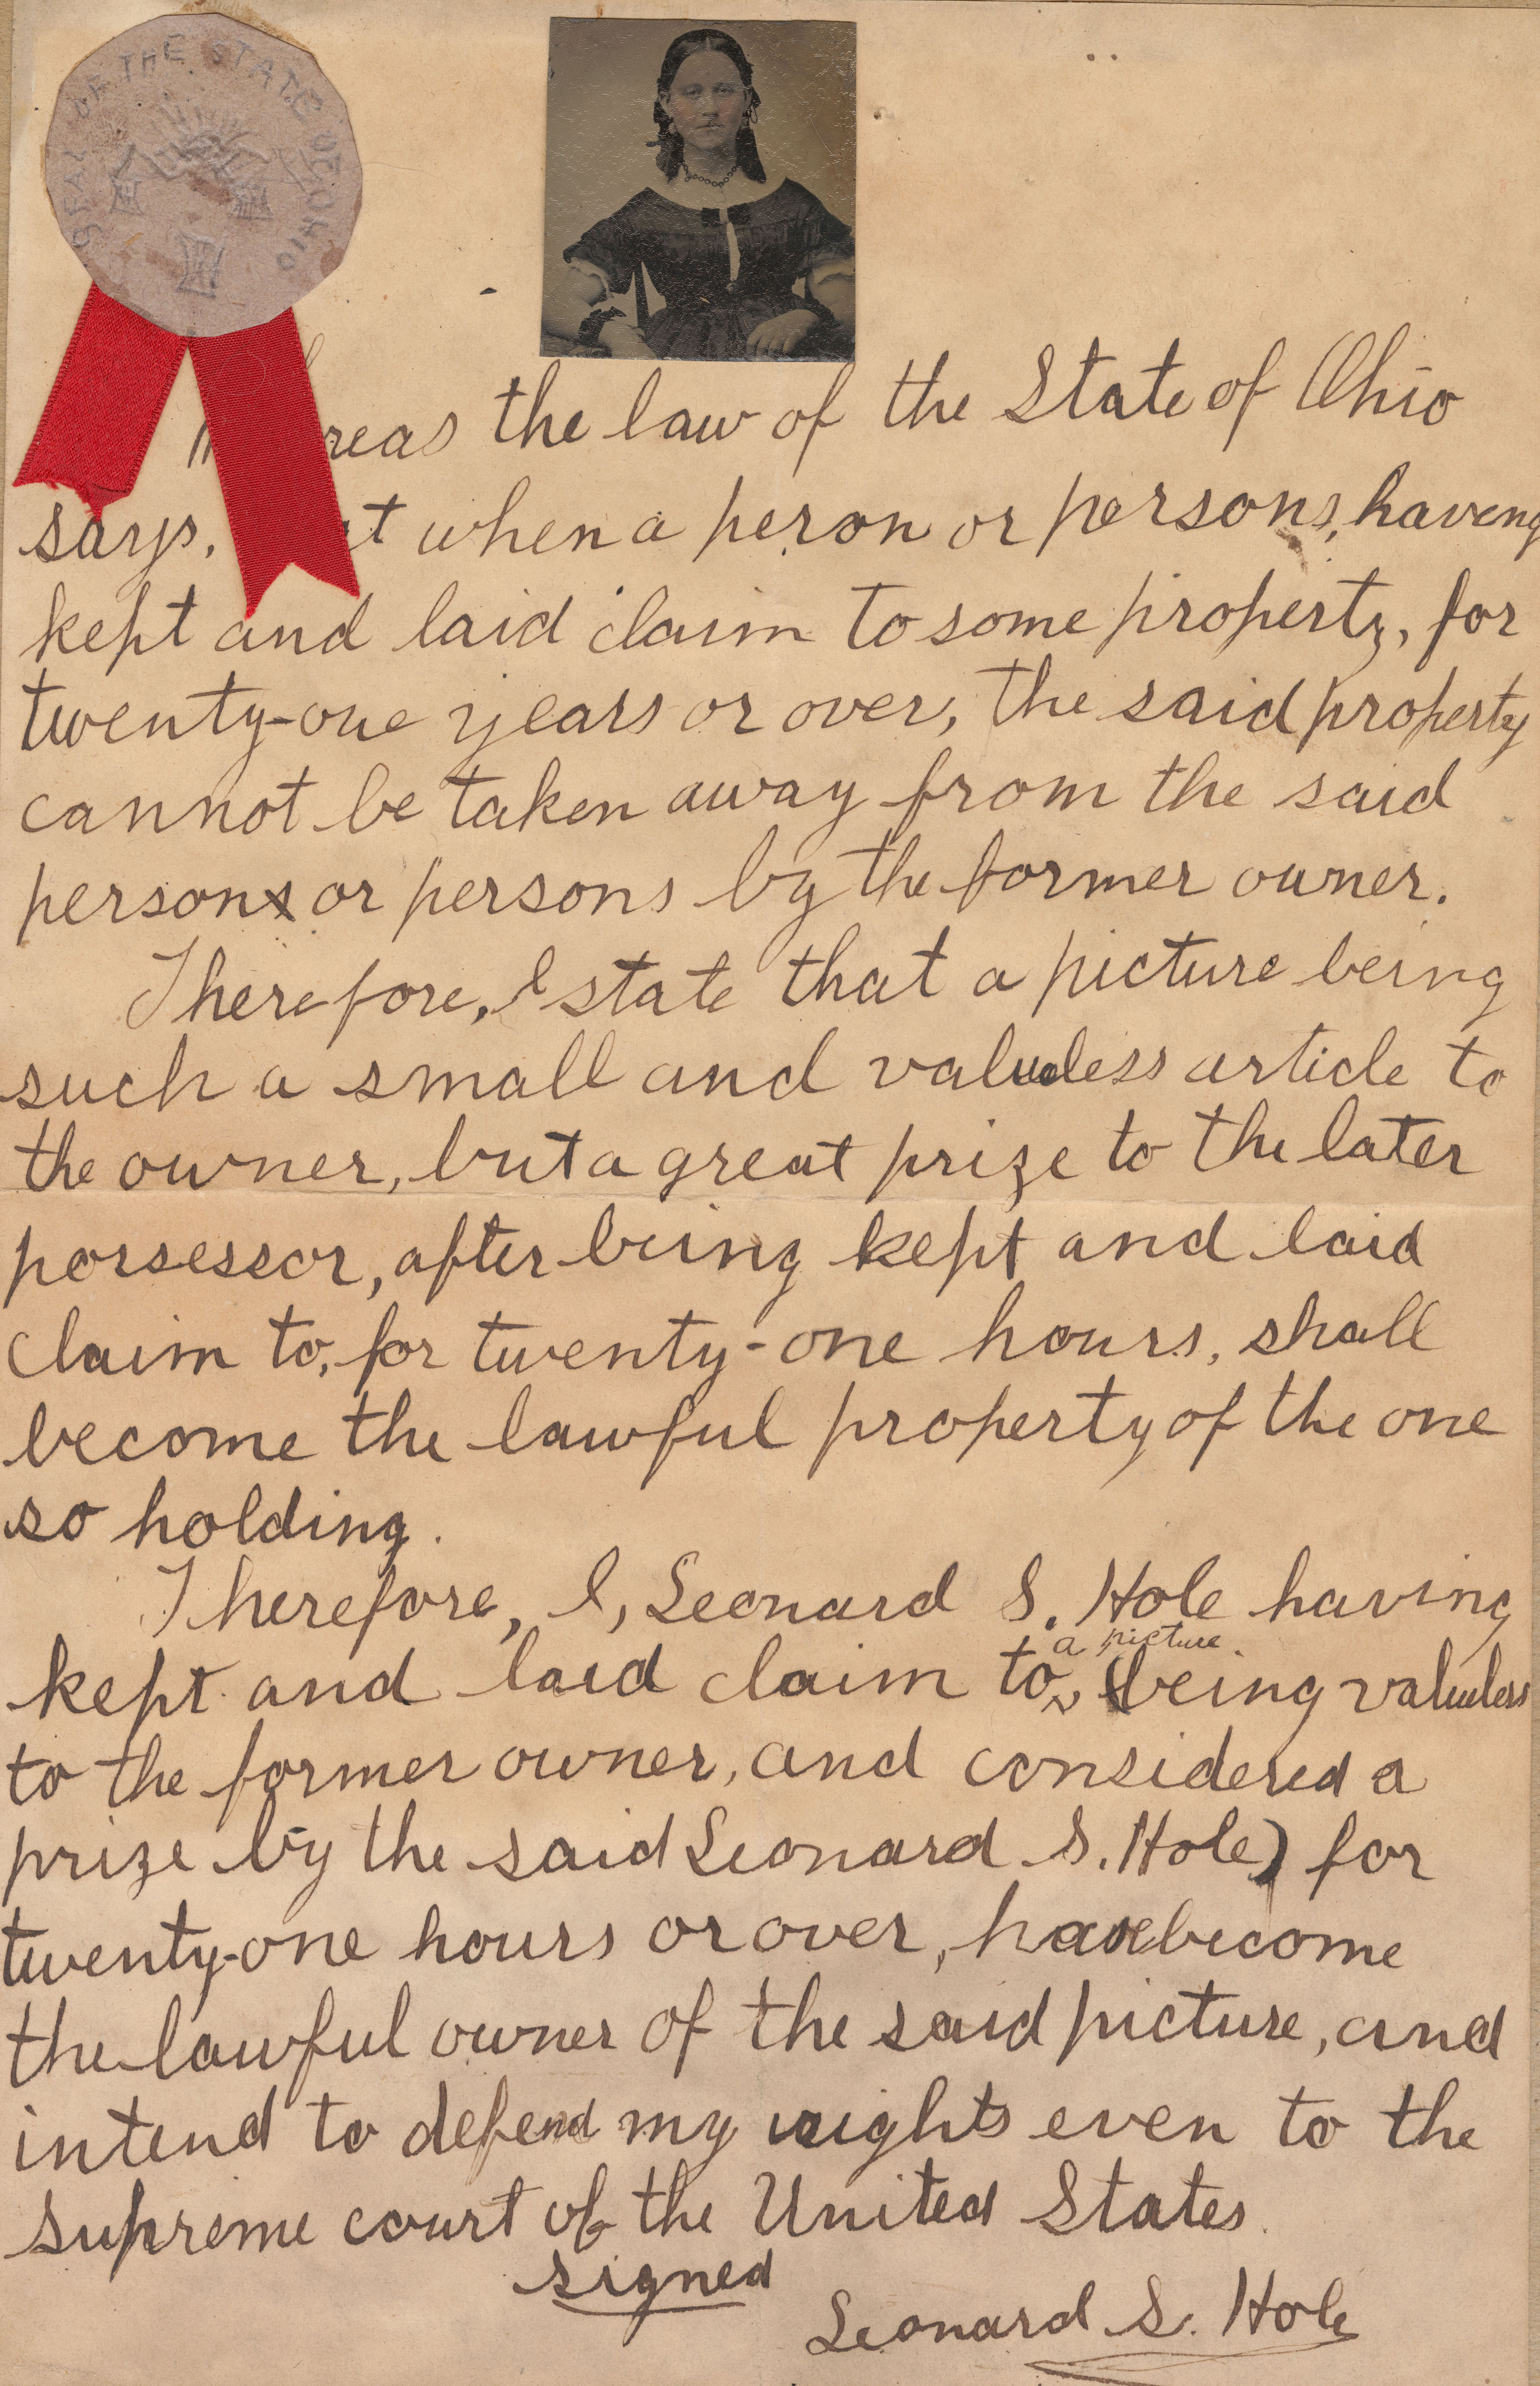 SEAL OF THE STATE OF OHIO
reas the law of the State of Ohio
says, t when a peron or persons, haveng
kept and laid claim to some property, for
twenty-one years or over, the said property
cannot be taken away from the said
person or persons by the former owner.
Therefore, I state that a picture being
such a small and valueless article to
the owner, but a great prize to the later
porsessor, after being kept and laid
claim to, for twenty-one hours, shall
become the lawful property of the one
so holding.
Therefore, I, Leonard S. Hole having
a picture
kept and laid claim to, (being valueless
to the former owner, and considered a
prize by the said Leonard S. Hole) for
twenty-one hours or over, have become
the lawful owner of the said picture, and
intend to defend my rights even to the
supreme court of the United States.
signed
Leonard S. Hole